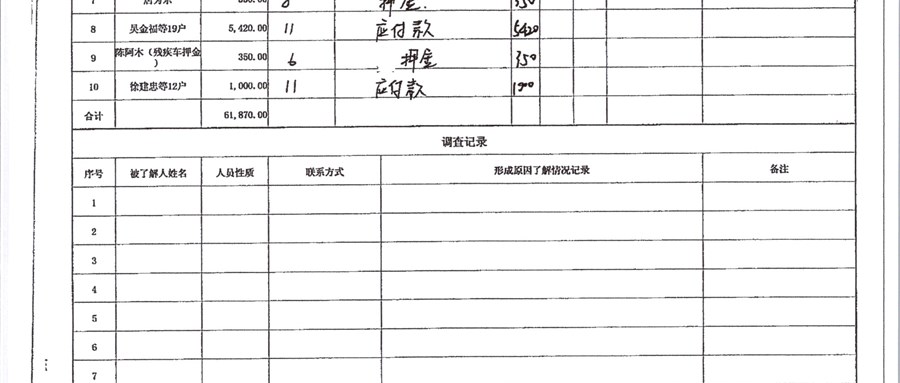 8 吴金福等19户 5,420.00 11 应付款 5420
9 陈阿木（残疾车押金） 350.00 6 押金 350
10 徐建忠等12户 1,000.00 11 应付款
合计 61,870.00
调查记录
序号 被了解人姓名 人员性质 联系方式 形成原因了解情况记录 备注
1
2
3
4
5
6
7